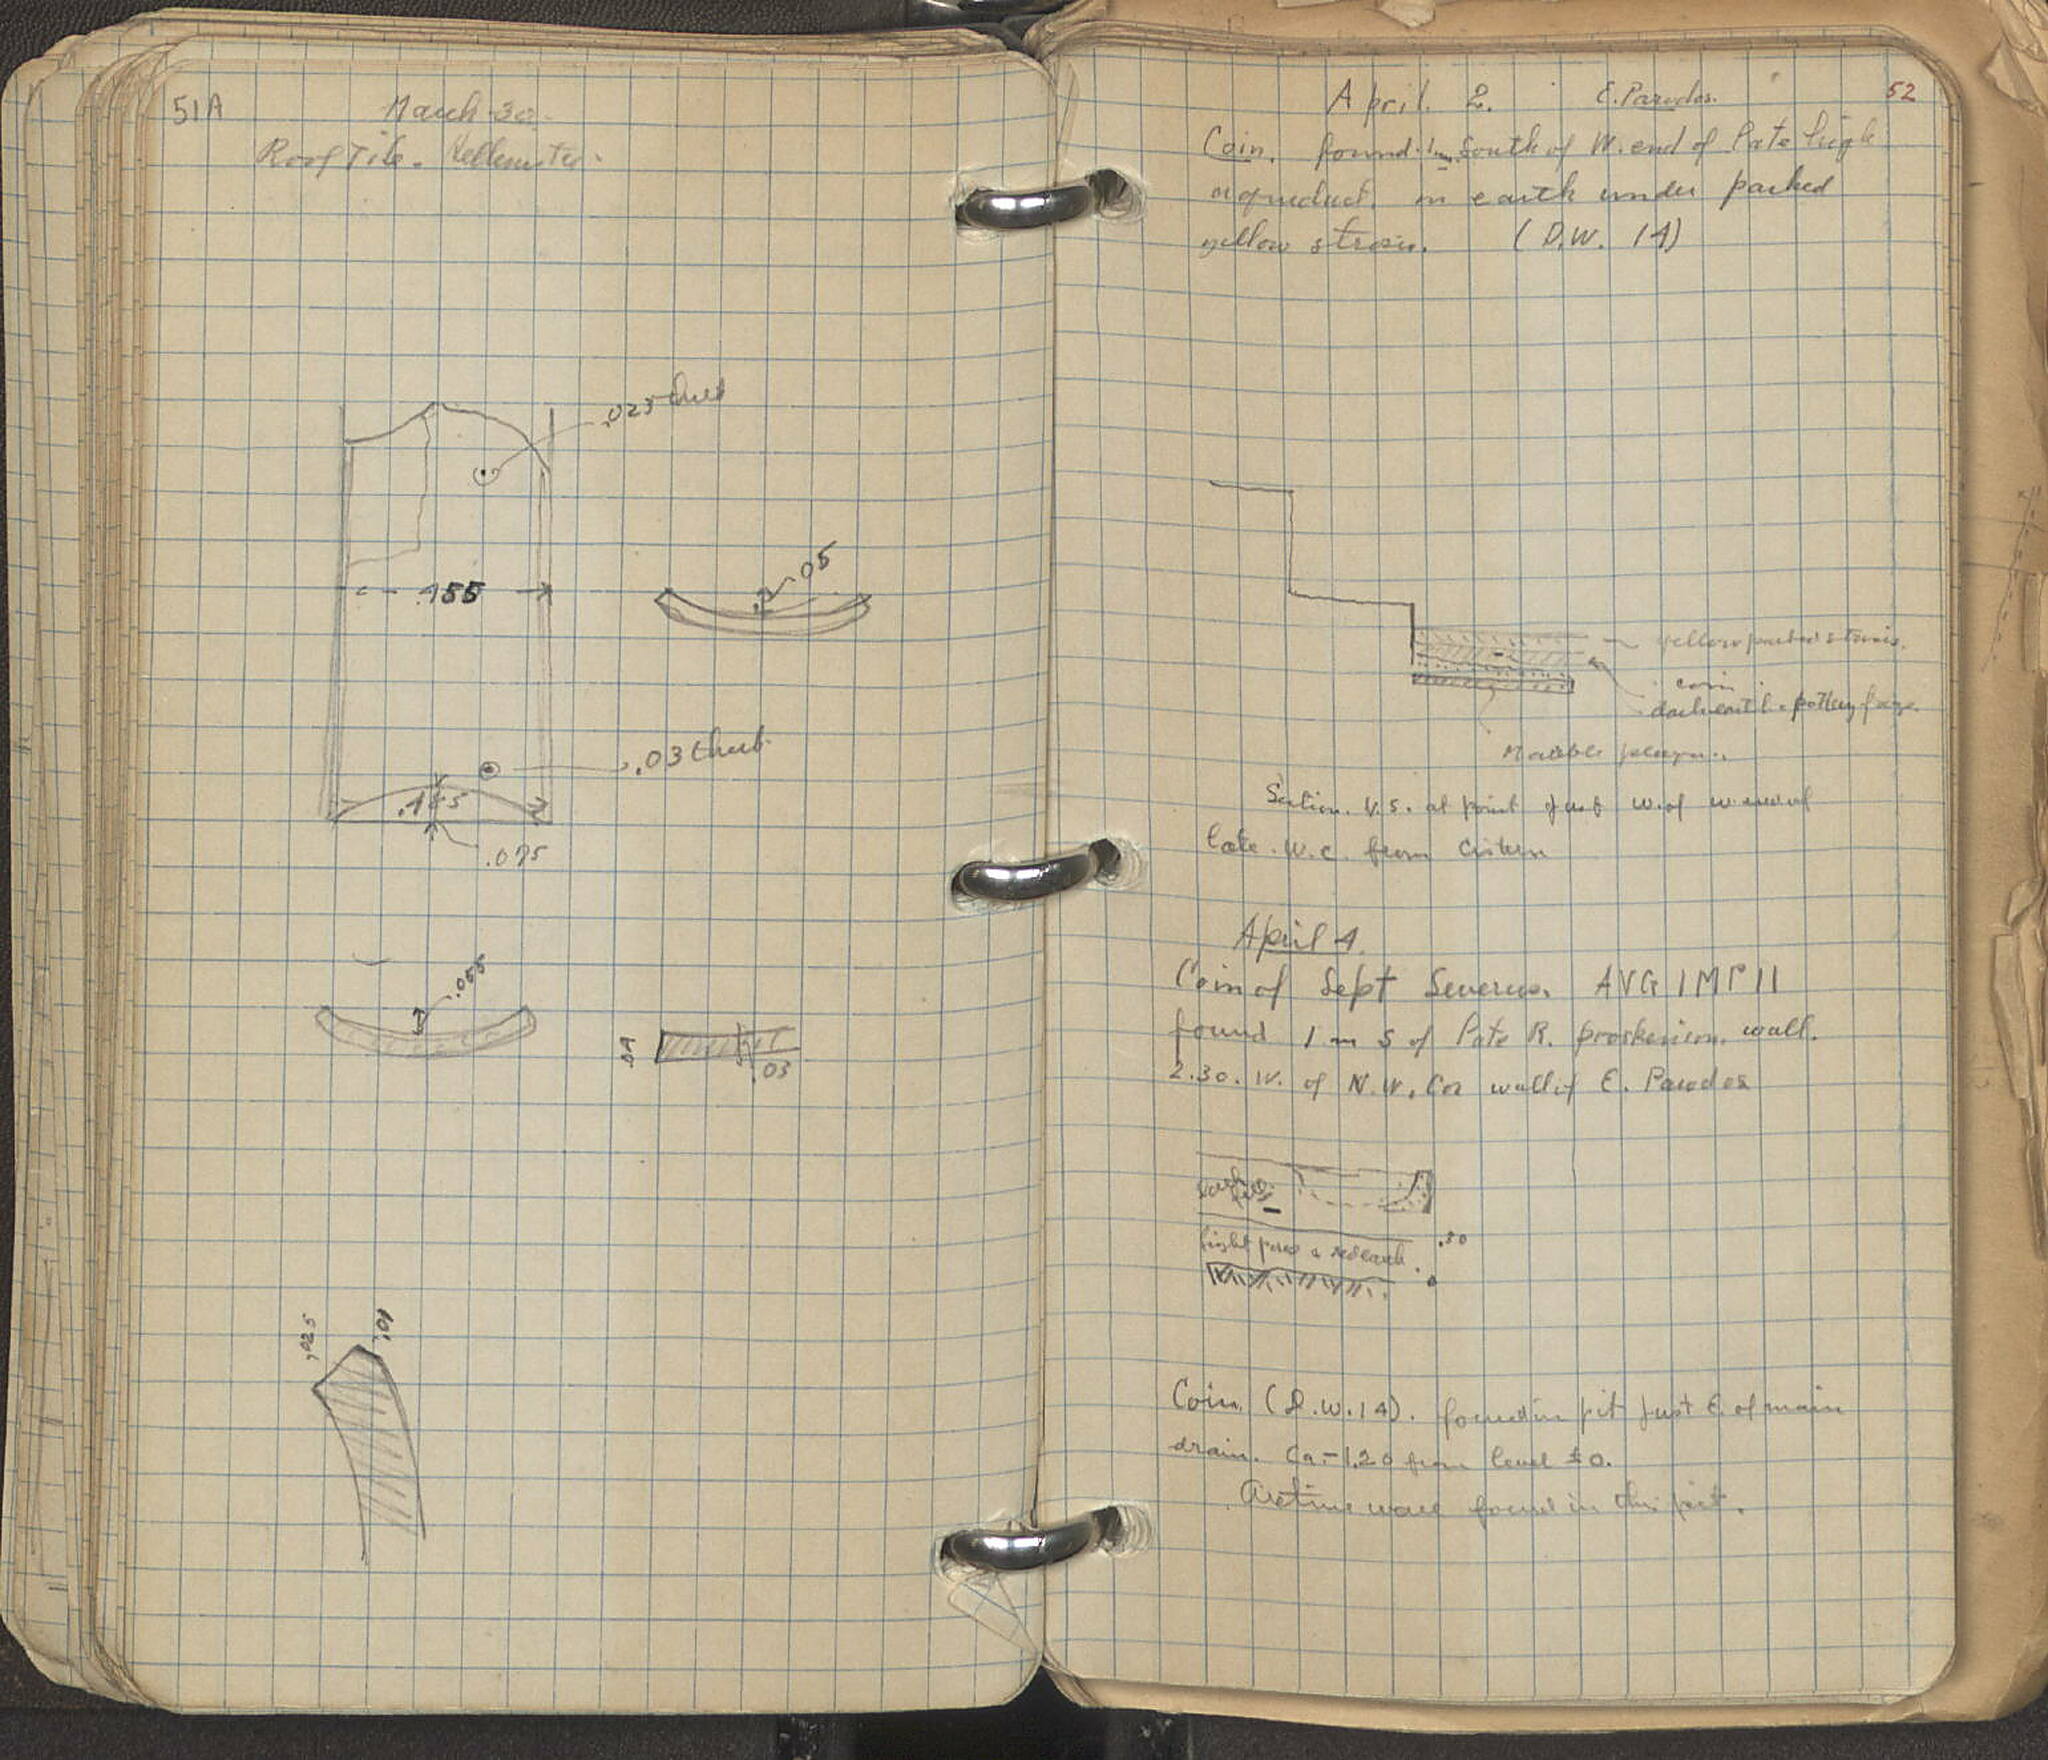 51A
March 30.
Roof Tile. Hellenistic.
.025 thick
.155
.05
.03 thick
.075
.055
.04
.03
.025
.01
52
April 2. E. Parodos.
Coin. found 1 m. South of W. end of late high
aqueduct. in earth under packed
yellow strosis. (D.W. 14)
yellow packed strosis.
coin
dark earth & pottery frags.
Marble
Section. at point just W. of W. end of
late W.C. from cistern
April 4.
Coin of Sept Severus. AVG IMP II
found 1 m S of late R. proskenion wall.
2.30. W. of N.W. Cor wall of E. Parodos
light & red earth.
.30
0
Coin. (D.W. 14). found in pit just E. of main
drain. Ca - 1.20 from level ±0.
Aretine ware found in this pit.